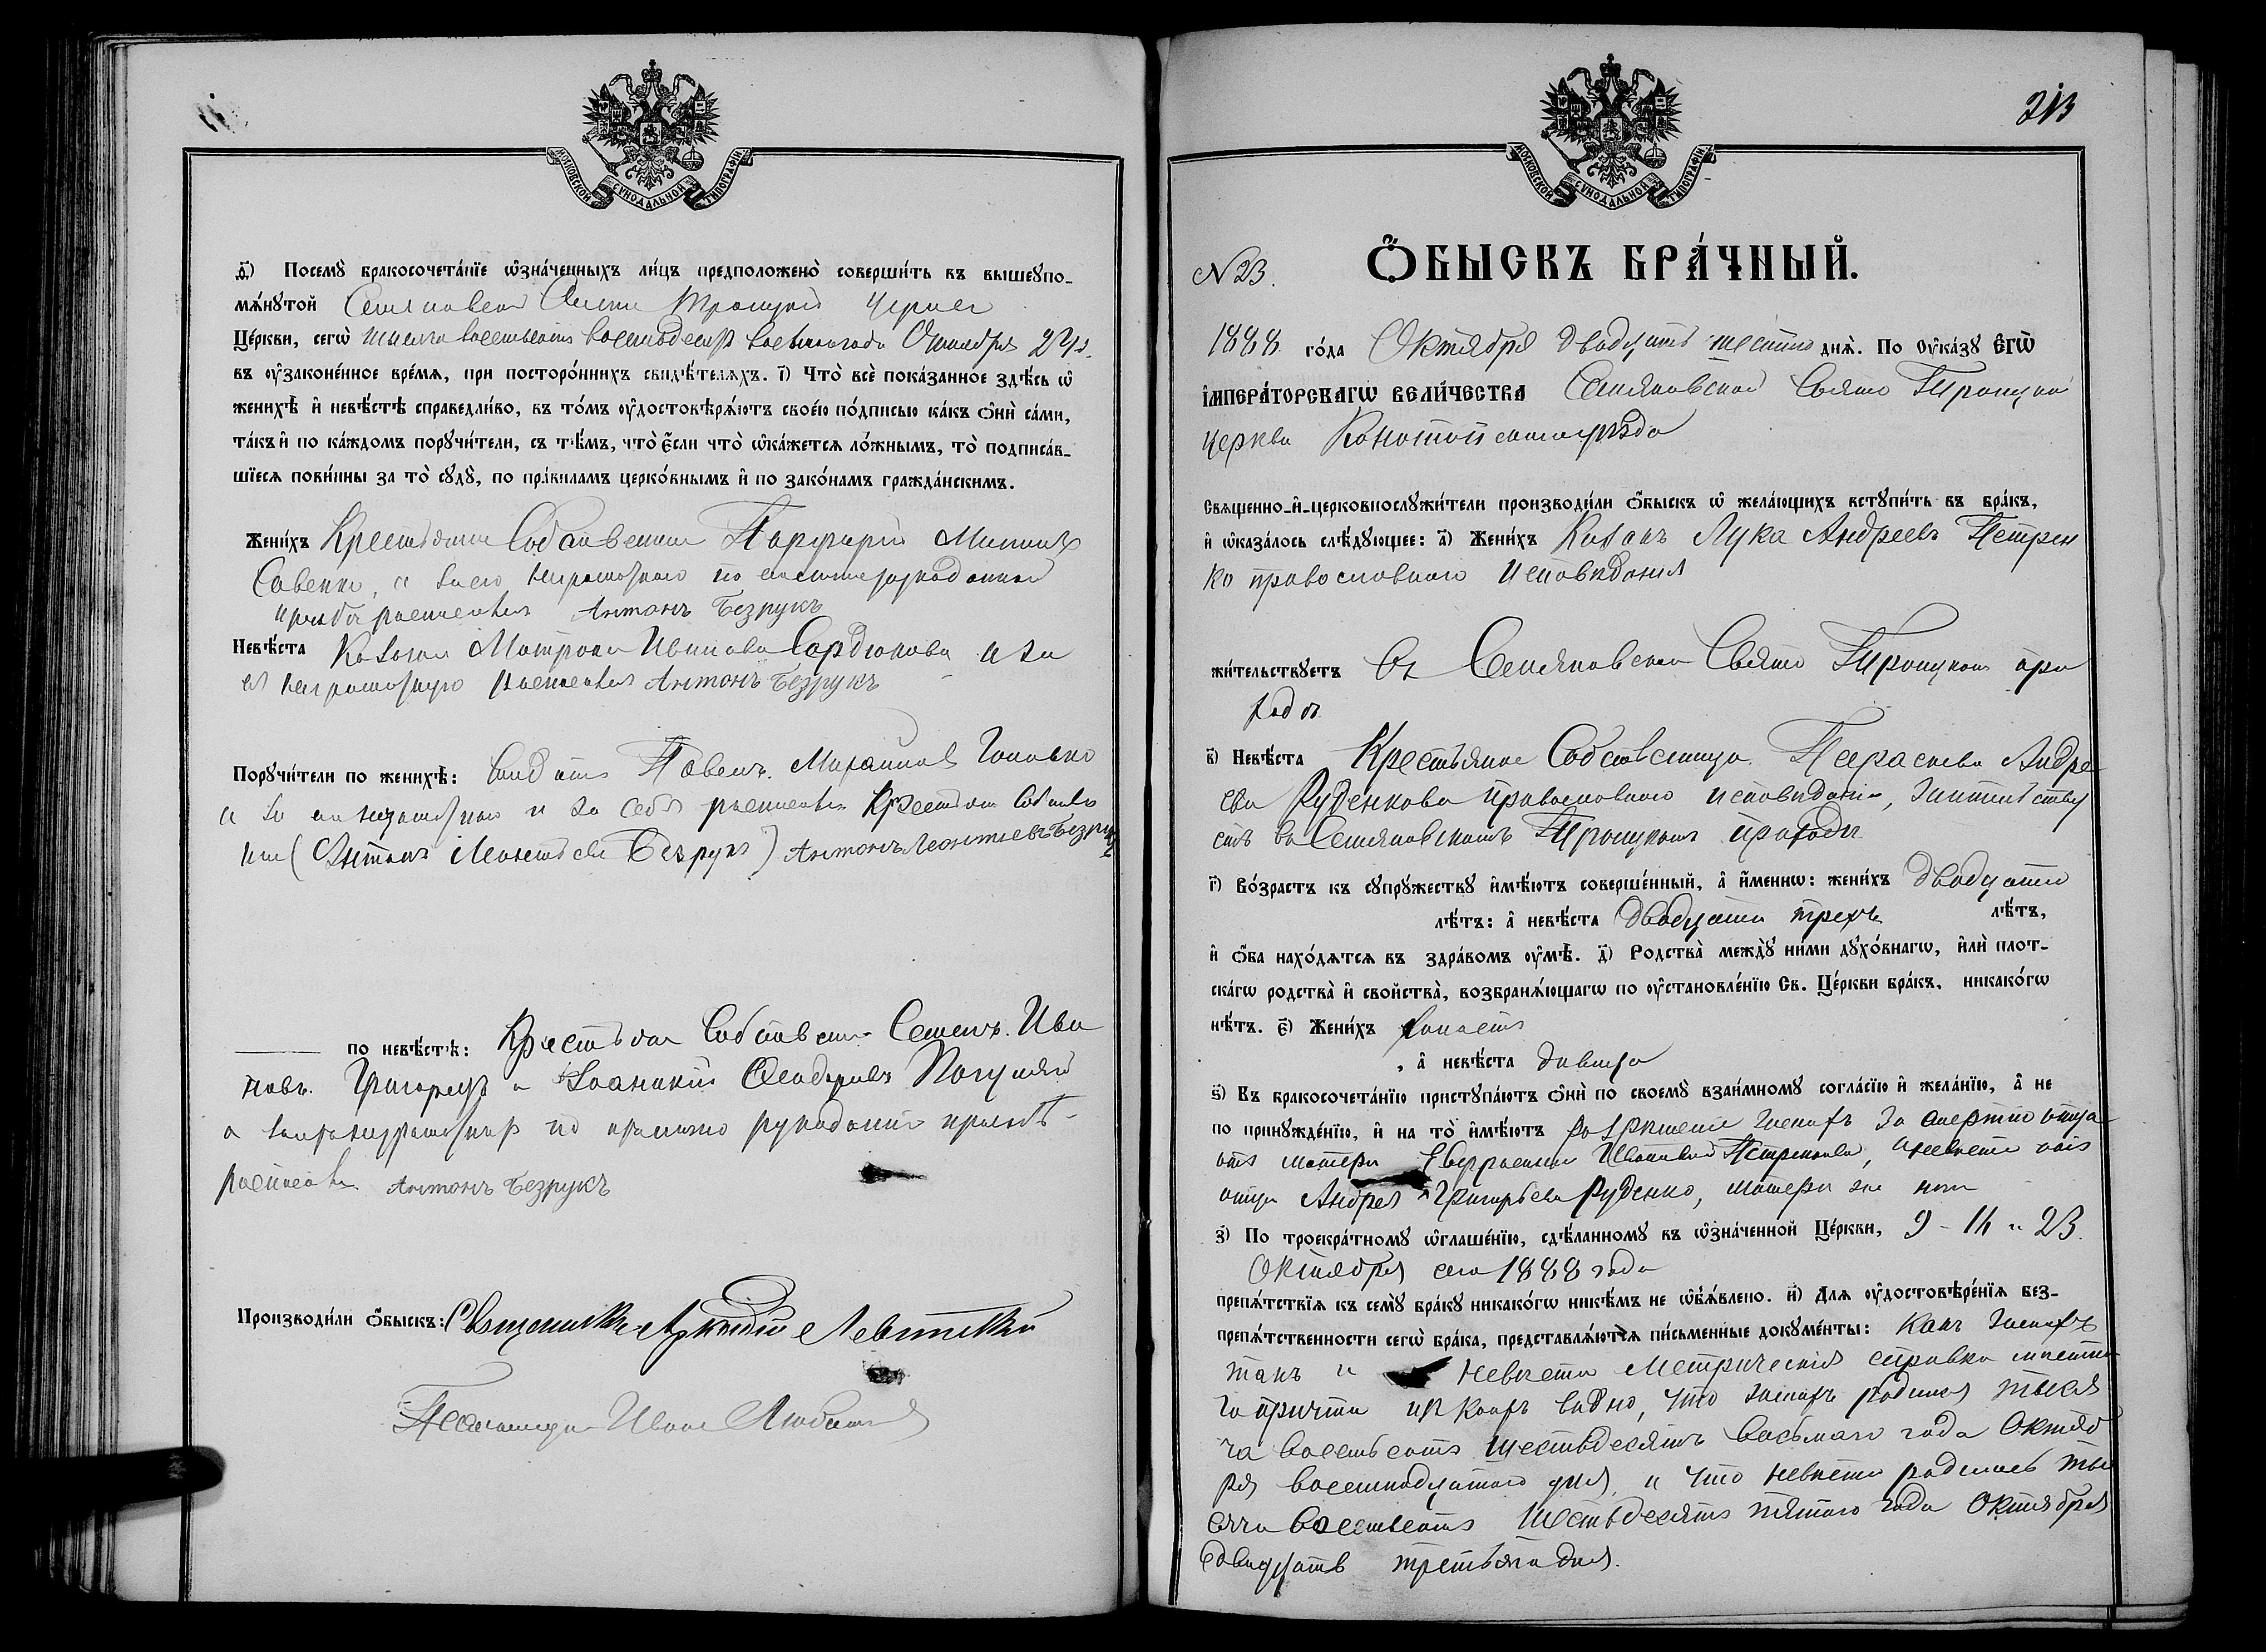 МОСКОВСКОЙ СѴНОДАЛЬНОЙ ТИПОГРАФІИ
ѳ҃) Посемꙋ̀ бракосочета́нїе ѡ҆зна́ченныхъ ли́цъ предположено̀ соверши́ть въ вышеꙋпо-
мѧ́нꙋтой Семяновской Свято Троицкой Церкви
Це́ркви, сегѡ̀ тысяча восемьсотъ восемьдесятъ восьмого года Октября
въ ᲂу҆законе́нное вре́мѧ, при посторо́ннихъ свидѣ́телѧхъ. і҃) Что̀ всѐ пока́занное здѣ́сь ѡ҆
женихѣ̀ и҆ невѣ́стѣ справедли́во, въ то́мъ ᲂу҆достовѣрѧ́ютъ свое́ю по́дписью ка́къ ѻ҆нѝ са́ми,
та́къ и҆ по ка́ждомъ порꙋчи́тели, съ тѣ́мъ, что̀ є҆́сли что̀ ѡ҆ка́жетсѧ ло́жнымъ, то̀ подписа́в-
шїесѧ пови́нны за то̀ сꙋдꙋ̀, по пра́виламъ церко́внымъ и҆ по зако́намъ гражда́нскимъ.
Жени́хъ Крестьянинъ Собственникъ Парфирій
Савенко, а за его неграмотного по рукоданной
прозбѣ росписался Антонъ Безрукъ
Невѣ́ста Козачка Матрона Иванова Сардюкова а за
ея неграмотную росписался Антонъ Безрукъ
Порꙋчи́тели по женихѣ̀: Солдатъ Павелъ Михаиловъ Головко
а за неграмотного и за себя росписался Крестьян Собствен
ник (Антонъ Леонтьевъ Безрукъ) Антонъ Леонтьевъ Безрукъ
по невѣ́стѣ: Крестьян Собствен Семенъ Ива
новъ Григорец и Іоаникій Феодоровъ
а за неграмотныхъ по рукоданной прозбѣ
росписался Антонъ Безрукъ
Производи́ли ѻ҆́быскъ: Священникъ Аркадій Левитскій
Псаломщик Иван
МОСКОВСКОЙ СѴНОДАЛЬНОЙ ТИПОГРАФІИ
213
N 23. Ѻ҆́БЫСКЪ БРА́ЧНЫЙ.
1888 го́да Октября двадцать шестого днѧ̀. По Оу҆ка́зꙋ Є҆гѡ̀
І҆МПЕРА́ТОРСКАГѠ ВЕЛИ́ЧЕСТВА Семяновской Свято Троицкой
церкви Конотопского уѣзда
Свѧщенно-и҆-церковнослꙋжи́тели производи́ли ѻ҆́быскъ ѡ҆ жела́ющихъ встꙋпи́ть въ бра́къ,
и҆ ѡ҆каза́лось слѣ́дꙋющее: а҃) Жени́хъ Козакъ Лука Андреевъ Петрен
ко православного исповѣданія
жи́тельствꙋетъ въ Семяновской Свято Троицкомъ при
ходѣ
в҃) Невѣ́ста Крестьянка Собственница Параскева Андре
ева Руденкова православного исповѣданія, жительству
етъ въ Семяновскомъ Троицкомъ приходѣ
г҃) Во́зрастъ къ сꙋпрꙋ́жествꙋ и҆мѣ́ютъ соверше́нный, а҆ и҆́меннѡ: жени́хъ двадцати
лѣ́тъ: а҆ невѣ́ста двадцати трехъ лѣ́тъ,
и҆ ѻ҆́ба нахо́дѧтсѧ въ здра́вомъ ᲂу҆мѣ̀. д҃) Родства̀ междꙋ̀ ни́ми дꙋхо́внагѡ, и҆лѝ плот-
ска́гѡ родства̀ и҆ свойства̀, возбранѧ́ющагѡ по ᲂу҆становле́нїю Св. Це́ркви бра́къ, никако́гѡ
нѣ́тъ. є҃) Жени́хъ холостъ
, а҆ невѣ́ста дѣвица
ѕ҃) Въ бракосочета́нїю пристꙋпа́ютъ ѻ҆нѝ по своемꙋ̀ взаи́мномꙋ согла́сїю и҆ жела́нїю, а҆ не
по принꙋжде́нїю, и҆ на то̀ и҆мѣ́ютъ разрѣшеніе женихъ за смертію отца
отъ матери Евфросиніи Ивановой Петренковой, а невѣста отъ
отца Андрея Григорьева Руденко, матери же нѣт
з҃) По троекра́тномꙋ ѡ҆глаше́нїю, сдѣ́ланномꙋ въ ѡ҆зна́ченной Це́ркви, 9 - 16 и 23
Октября сего 1888 года
препѧ́тствїѧ къ семꙋ̀ бра́кꙋ никако́гѡ никѣ́мъ не ѡ҆б̾ѧ́влено. и҃) Длѧ ᲂу҆достовѣре́нїѧ без-
препѧ́тственности сегѡ̀ бра́ка, представлѧ́ютсѧ пи́сьменные докꙋме́нты: какъ жениха
такъ и невѣсты Метрическія справка мѣстно
го причта изъ коихъ видно, что женихъ родился тыся
ча восемьсотъ шестьдесятъ восьмаго года Октяб
ря восемнадцатого дня, а что невѣста родилась ты
сяча восемьсотъ шестьдесятъ пятого года Октября
двадцать третьяго дня.